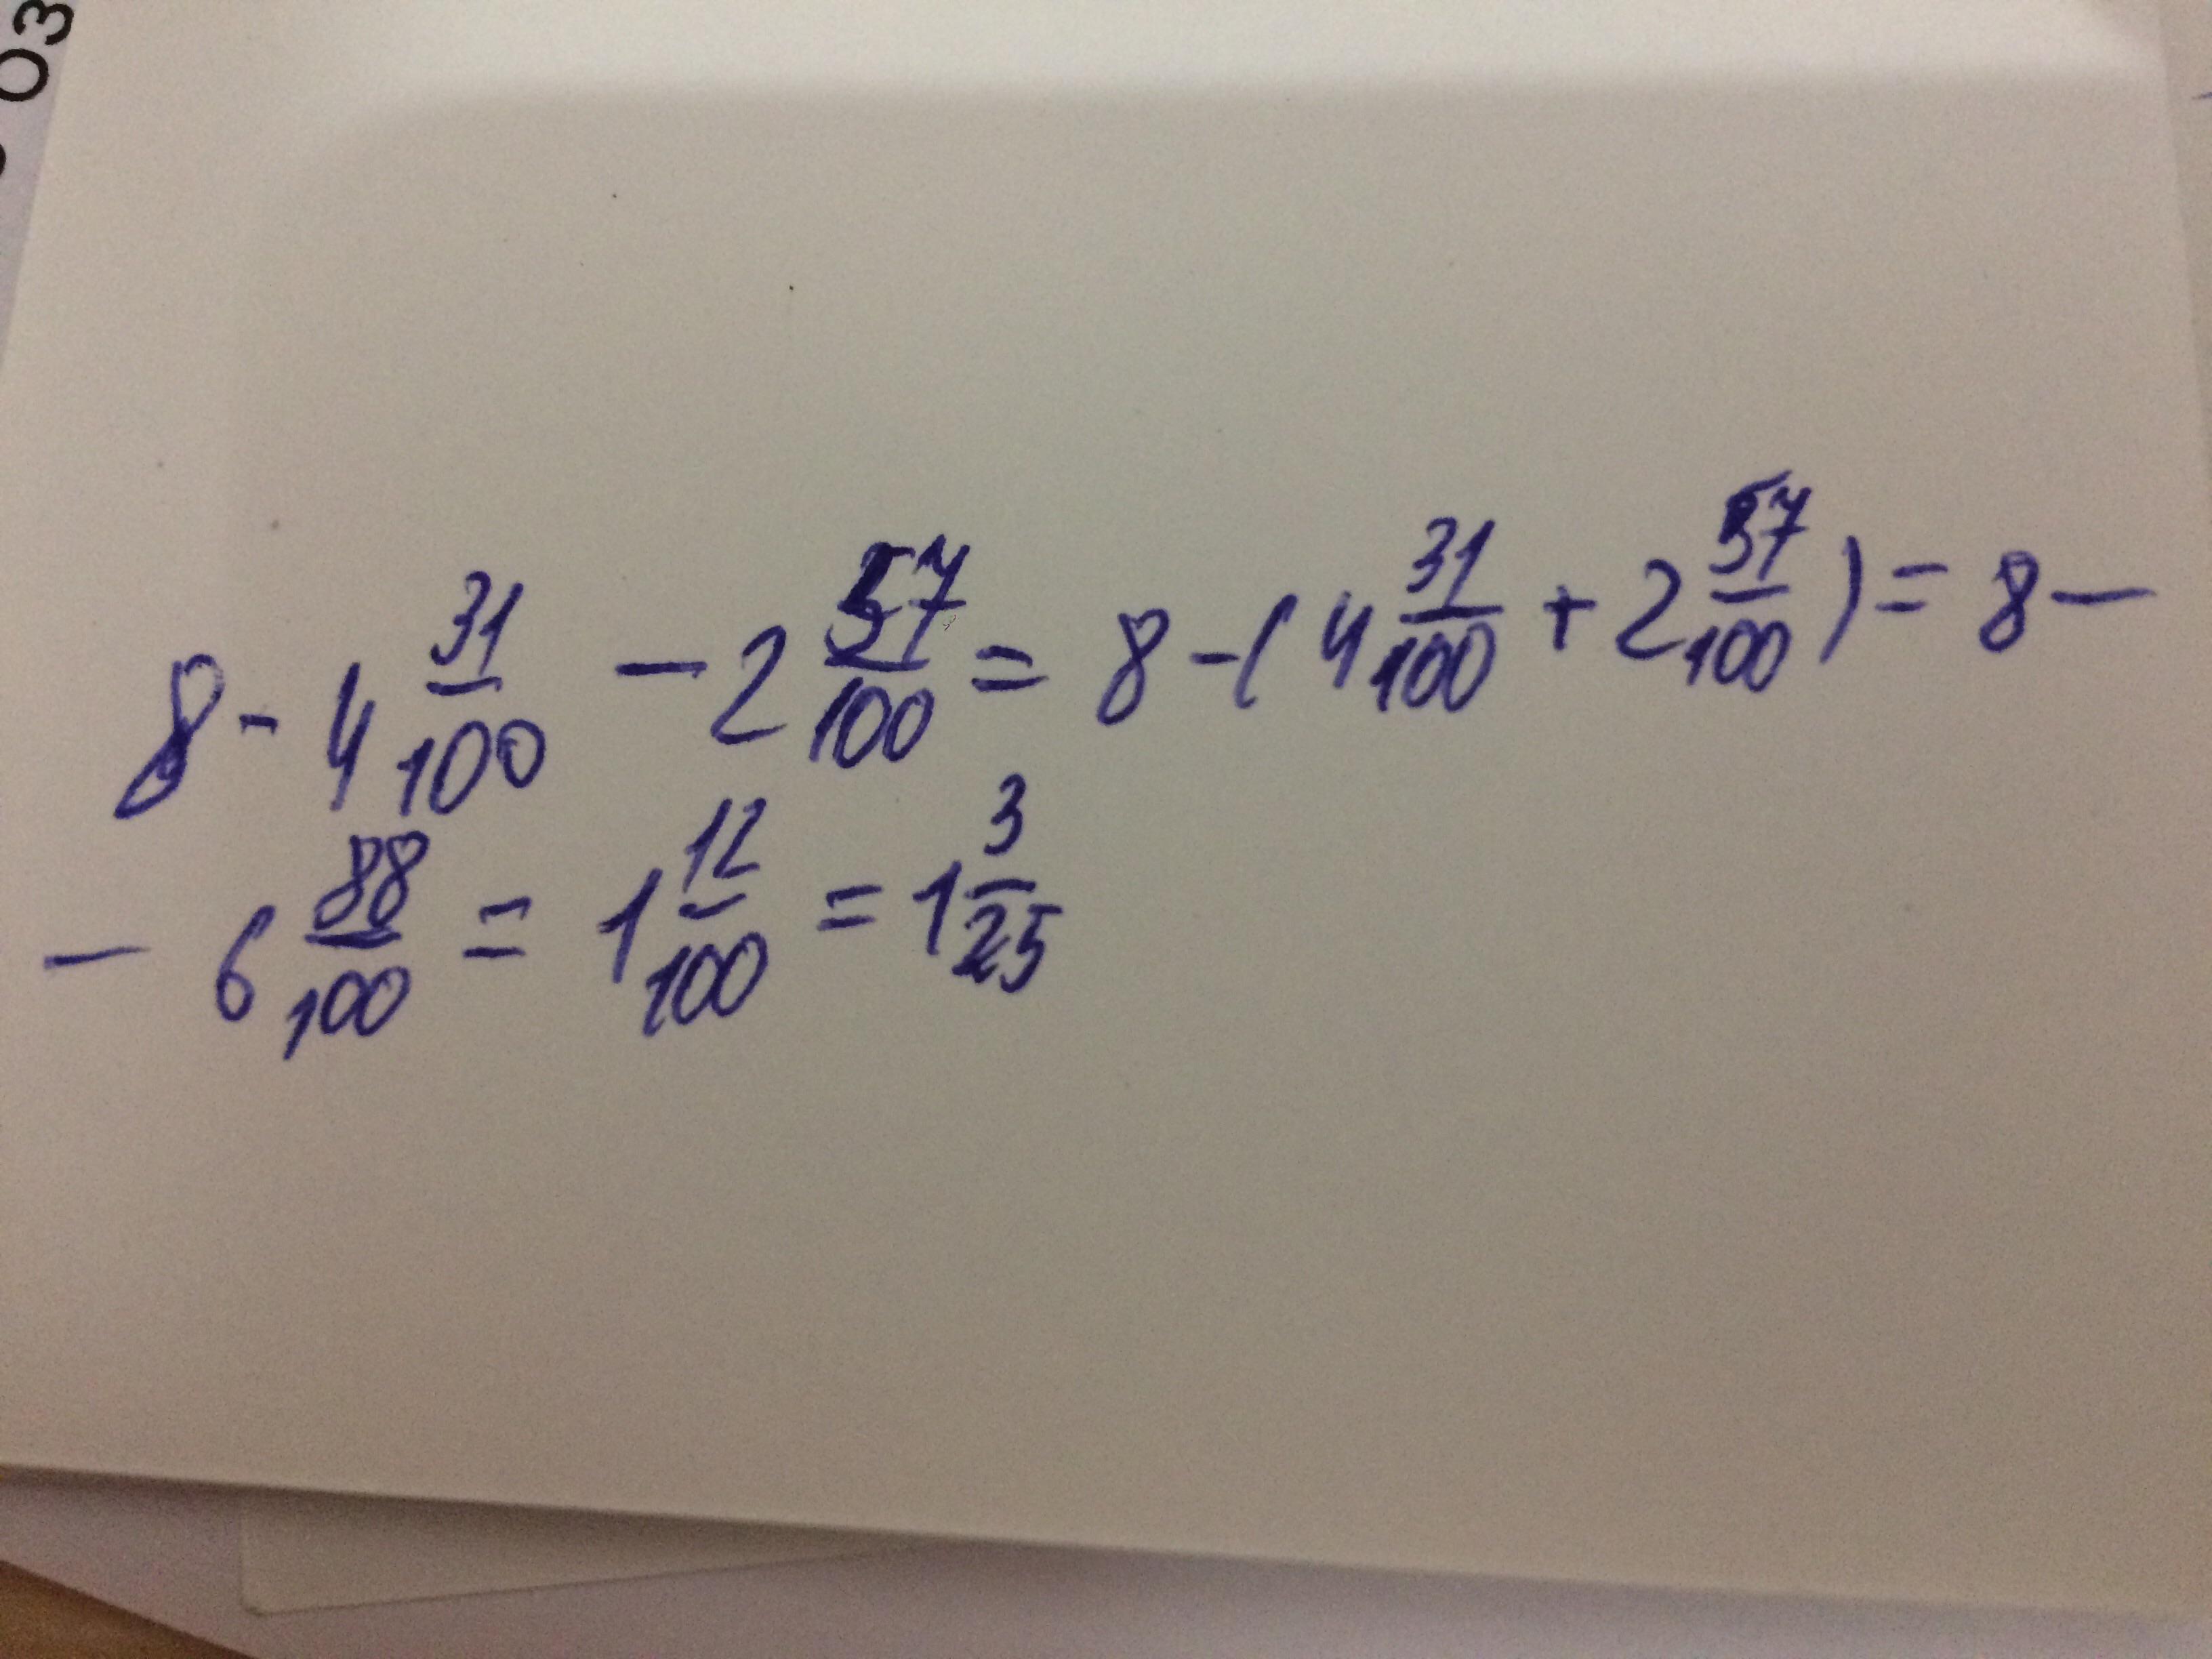 03
8 - 4 31/100 - 2 57/100 = 8 - ( 4 31/100 + 2 57/100 ) = 8 -
- 6 88/100 = 1 12/100 = 1 3/25